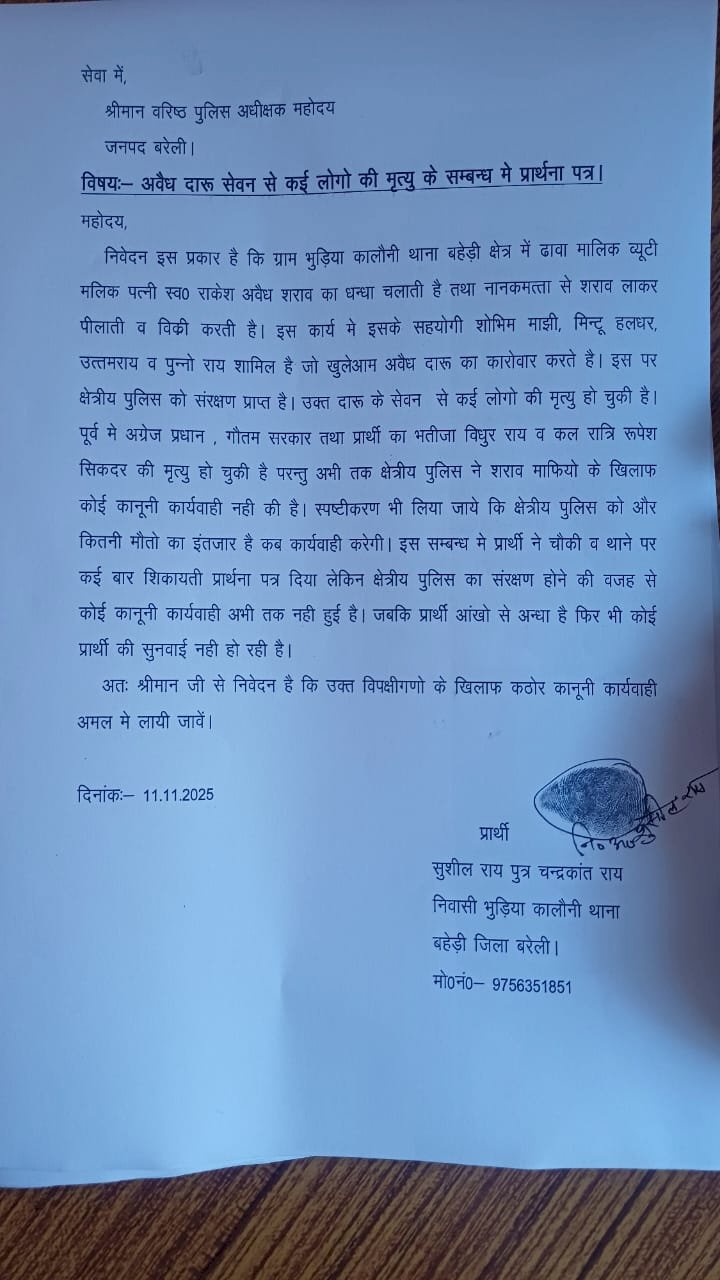 सेवा में,
श्रीमान वरिष्ठ पुलिस अधीक्षक महोदय
जनपद बरेली।
विषयः– अवैध दारू सेवन से कई लोगो की मृत्यु के सम्बन्ध मे प्रार्थना पत्र।
महोदय,
निवेदन इस प्रकार है कि ग्राम भुड़िया कालौनी थाना बहेड़ी क्षेत्र में ढावा मालिक व्यूटी
मलिक पत्नी स्व0 राकेश अवैध शराव का धन्धा चलाती है तथा नानकमत्ता से शराव लाकर
पीलाती व विक्री करती है। इस कार्य मे इसके सहयोगी शोभिम माझी, मिन्टू हलधर,
उत्तमराय व पुन्नो राय शामिल है जो खुलेआम अवैध दारू का कारोवार करते है। इस पर
क्षेत्रीय पुलिस को संरक्षण प्राप्त है। उक्त दारू के सेवन से कई लोगो की मृत्यु हो चुकी है।
पूर्व मे अग्रेज प्रधान , गौतम सरकार तथा प्रार्थी का भतीजा विधुर राय व कल रात्रि रूपेश
सिकदर की मृत्यु हो चुकी है परन्तु अभी तक क्षेत्रीय पुलिस ने शराव माफियो के खिलाफ
कोई कानूनी कार्यवाही नही की है। स्पष्टीकरण भी लिया जाये कि क्षेत्रीय पुलिस को और
कितनी मौतो का इंतजार है कब कार्यवाही करेगी। इस सम्बन्ध मे प्रार्थी ने चौकी व थाने पर
कई बार शिकायती प्रार्थना पत्र दिया लेकिन क्षेत्रीय पुलिस का संरक्षण होने की वजह से
कोई कानूनी कार्यवाही अभी तक नही हुई है। जबकि प्रार्थी आंखो से अन्धा है फिर भी कोई
प्रार्थी की सुनवाई नही हो रही है।
अतः श्रीमान जी से निवेदन है कि उक्त विपक्षीगणो के खिलाफ कठोर कानूनी कार्यवाही
अमल मे लायी जावें।
दिनांकः– 11.11.2025
नि०अ० सुशील राय
प्रार्थी
सुशील राय पुत्र चन्द्रकांत राय
निवासी भुड़िया कालौनी थाना
बहेड़ी जिला बरेली।
मो0नं0– 9756351851